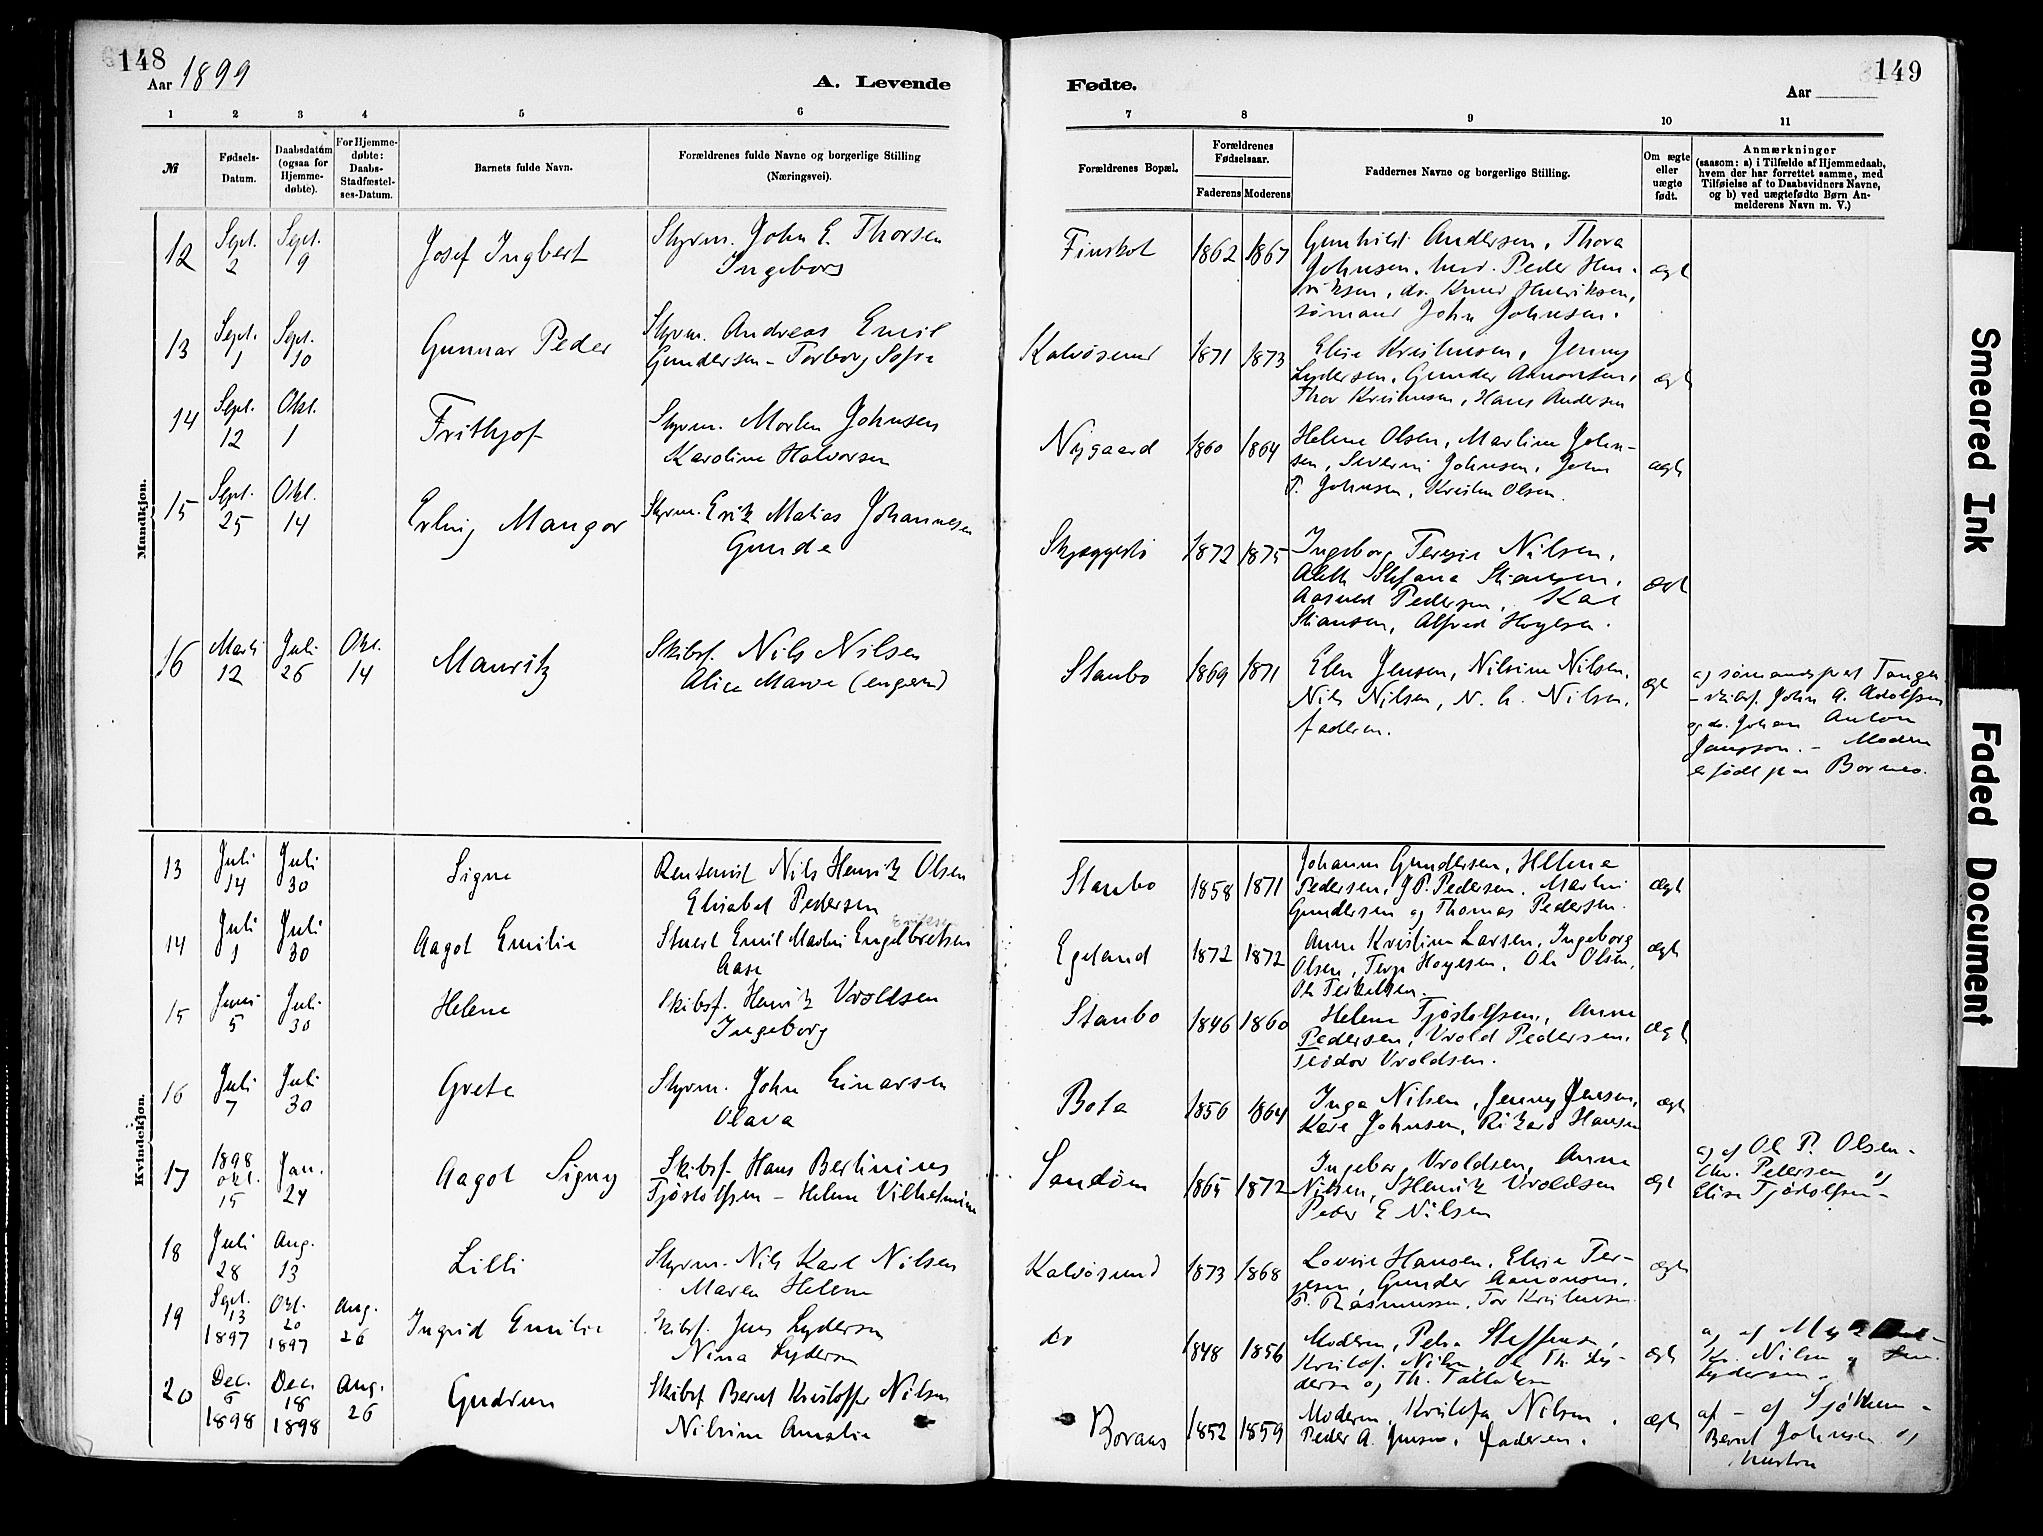 148
Aar 1899
A. Levende
1 2 3 4 5 6
№
Fødsels-
Datum.
Daabsdatum
(ogsaa for
Hjemme-
døbte).
For Hjemme-
døbte:
Daabs-
Stadfæstel-
ses-Datum.
Barnets fulde Navn.
Forældrenes fulde Navne og borgerlige Stilling
(Næringsvei).
Mandkjøn.
12 Sept. 2 Sept. 9 Josef Ingbert
Styrm. John E. Thorsen
Ingeborg
13 Sept. 1 Sept. 10 Gunnar Peder
Styrm. Andreas Emil
Gundersen - Torborg Sofie
14 Sept. 12 Okt. 1 Frithjof
Styrm. Morten Johnsen
Karoline Halvorsen
15 Sept. 25 Okt. 14 Erling Mangor
Styrm. Erik Matias Johannesen
Gunda
16 Marts 12 Juli 26 Okt. 14 Mauritz
Skibsf. Nils Nilsen
Alice Marie
Kvindekjøn.
13 Juli 14 Juli 30 Signe
Rentenist Nils Henrik Olsen
Elisabet Pedersen
14 Juli 1 Juli 30 Aagot Emilie
Stuert Emil Martin Engelbretsen
Eriksen
Aase
15 Juni 5 Juli 30 Helene
Skibsf. Henrik Vroldsen
Ingeborg
16 Juli 7 Juli 30 Grete
Styrm. John Einarsen
Olava
17 1898 Okt. 15 Jan. 24 Aagot Signy
Skibsf. Hans Bertinius
Tjøstolfsen - Helene Vilhelmine
18 Juli 28 Aug. 13 Lilli
Styrm. Nils Karl Nilsen
Maren Helene
19 Sept. 13 1897 Okt. 20 1897 Aug. 26 Ingrid Emilie
Skibsf. Jens Lydersen
Nina Lydersen
20 Dec. 6 1898 Dec. 18 1898 Aug. 26 Gudrun
Skibsf Bernt Kristoffer Nilsen
Nilsine Amalie
149
Fødte.
Aar
7 8 9 10 11
Forældrenes Bopæl.
Forældrenes
Fødselsaar.
Faderens Moderens
Faddernes Navne og borgerlige Stilling.
Om ægte
eller
uægte
født.
Anmærkninger
(saasom: a) i Tilfælde af Hjemmedaab,
hvem der har forrettet samme, med
Tilføielse af to Daabsvidners Navne,
og b) ved uægtefødte Børn An-
melderens Navn m. V.)
Finskot 1862 1867
Gunhild Andersen, Thora
Johnsen, Peder Hen-
riksen, do. Knud Henriksen,
sømand John Johnsen.
ægte
Kalvøsund 1871 1873
Elise Kristensen, Jenny
Lydersen, Gunder Aanonsen,
Thor Kristensen, Hans Andersen
ægte
Nygaard 1860 1864
Helene Olsen, Martine John-
sen, Severin Johnsen, John
P. Johnsen, Kristen Olsen.
ægte
1872 1875
Ingeborg Teresie Nilsen,
Stefana Stiansen,
Pedersen, Karl
Stiansen, Alfred Hoyesen.
ægte
Staubo 1869 1871
Elen Jensen, Nilsine Nilsen,
Nils Nilsen, N. C. Nilsen,
faderen.
ægte
a) sømandsprest Tangen
- skibsf. John A. Adolfsen
og do. Johan Anton
Jansson. - Moderen
er født paa Borneo.
Staubo 1858 1871
Johanne Gundersen, Helene
Pedersen, J.P. Pedersen, Martin
Gundersen og Thomas Pedersen.
ægte
Egeland 1872 1872
Anne Kristine Larsen, Ingeborg
Olsen, Terje Hoyesen, Ole Olsen,
Ole Terkelsen.
ægte
Staubo 1846 1860
Helene Tjøstolfsen, Anne
Pedersen, Vrold Pedersen,
Teodor Vroldsen.
ægte
Bota 1856 1864
Inga Nilsen, Jenny Jensen,
Karl Johnsen, Rikard Hansen
ægte
Sandøen 1865 1872
Ingebor, Vroldsen, Anne
Nilsen, Henrik Vroldsen
Peder E Nilsen
ægte
a) af Ole P. Olsen -
Chr. Pedersen og
Elise Tjøstolfsen -
Kalvøsund 1873 1868
Lovise Hansen, Elise Ter-
jesen, Gunder Aanonsen,
P. Rasmussen, Tor Kristensen
ægte
do 1848 1856
Moderen, Petra Steffensen,
Kristof. Nilsen, Ole Th. Ly-
dersen og Th. Tallaksen
ægte
a) af
Kr. Nilsen og
Lydersen -
Boraas 1852 1859
Moderen, Kristofa Nilsen,
Peder A. Jensen, Faderen.
ægte
af - af
Bernt Johnsen og
hustru
Smeared Ink
Faded Document